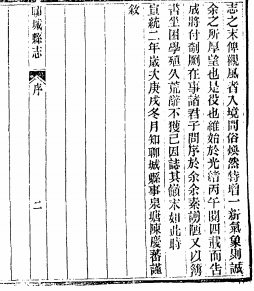 志之末俾觀風者入境問俗煥然特增一新氣象則誠
余之所厚望也是役也維始於光緒丙午閱四載而告
成將付剞劂在事諸君子問序於余余素謭陋又以簿
書坐困學殖久荒辭不獲已因誌其顛末如此時
宣統二年歲次庚戌冬月知聊城縣事泉塘陳慶蕃謹
敘
聊城縣志
序
二